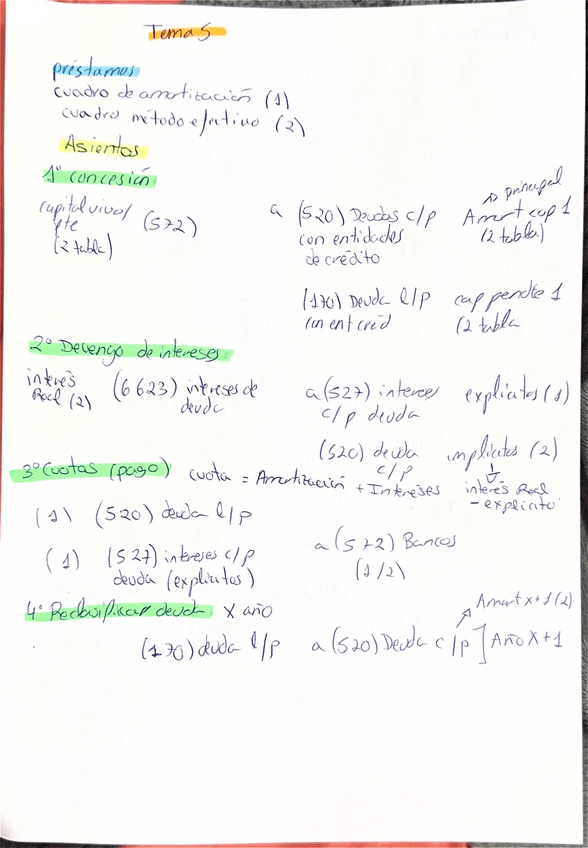 Tema 5
préstamos
cuadro de amortización (1)
cuadro método efectivo (2)
Asientos
1º concesión
capital vivo/ pte (2 tabla) (572) a (520) Deudas c/p con entidades de crédito → principal Amort cap 1 (2 tabla)
(170) Deuda l/p con ent créd cap pendte 1 (2 tabla
2º Devengo de intereses
interés Real (2) (6623) intereses de deuda a (527) intereses c/p deuda explícitos (1)
(520) deuda c/p implícitos (2)
↓ interés Real - explícito
3º Cuotas (pago) cuota = Amortización + Intereses
(1) (520) deuda l/p
(1) (527) intereses c/p deuda (explícitos) a (572) Bancos (1/2)
4º Reclasificar deuda X año
(170) deuda l/p a (520) Deuda c/p ] Año X+1
Amort x+1 (2)